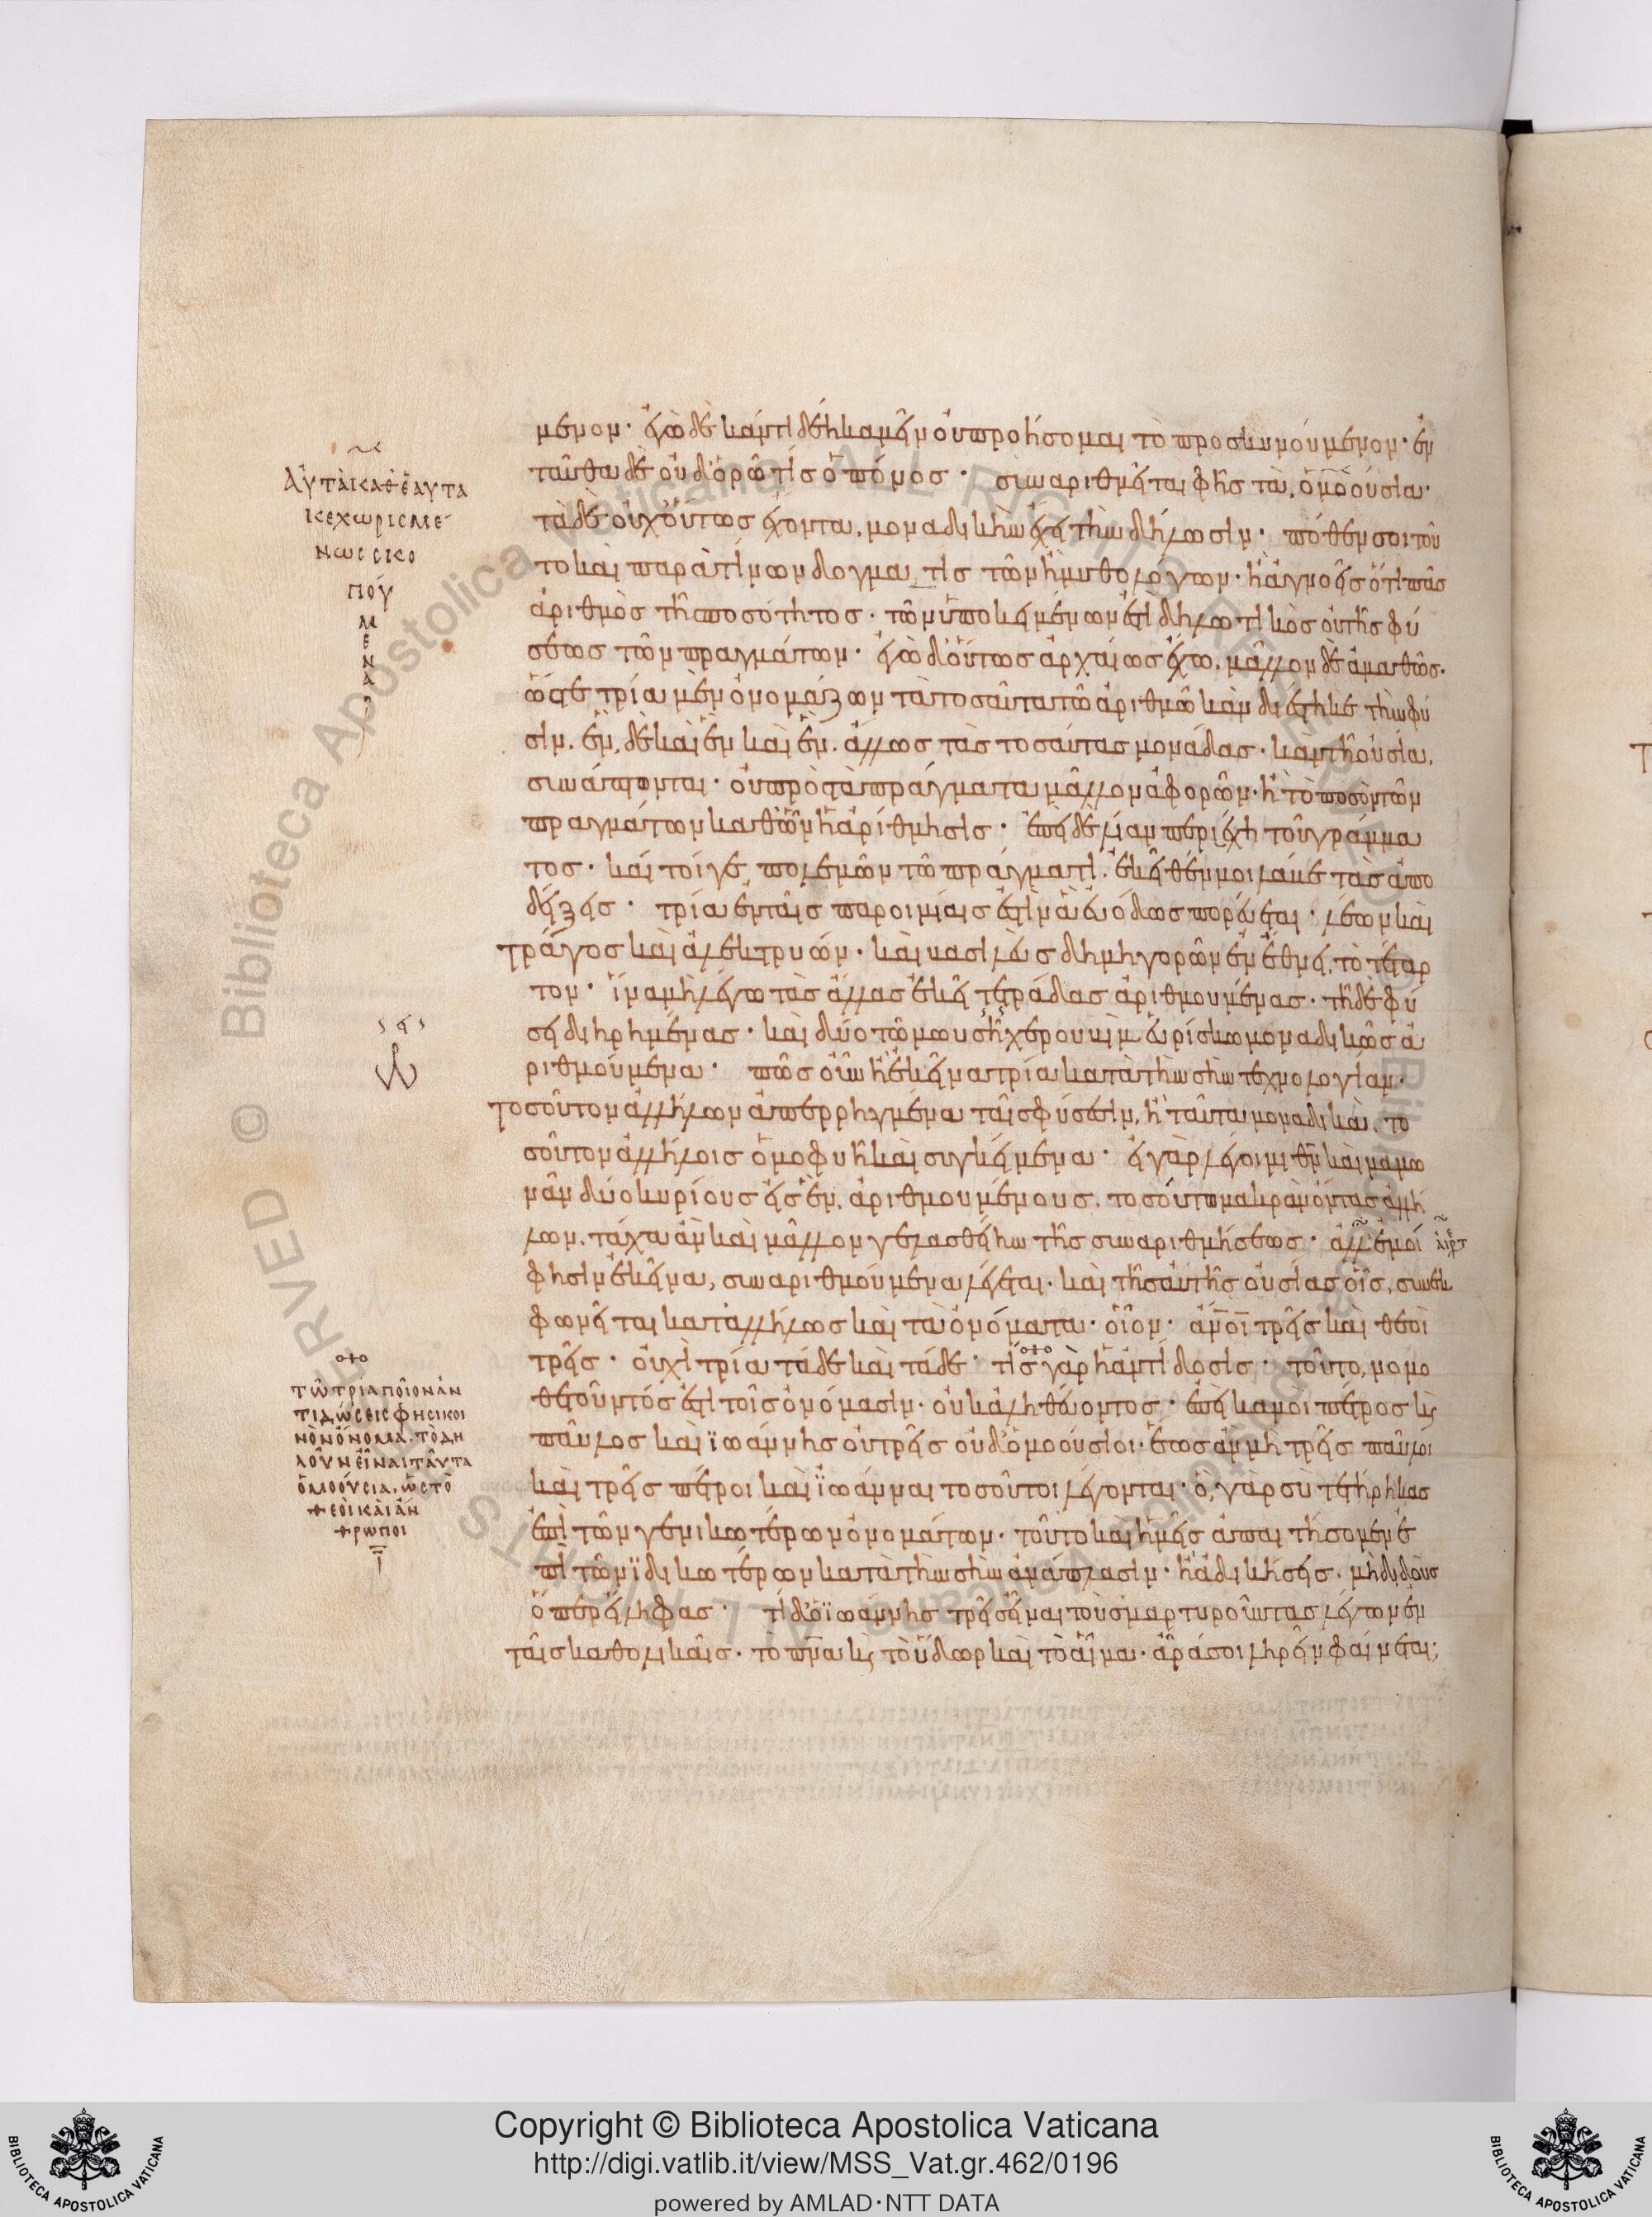 μενον· ἐγὼ δὲ κἂν τι δέη καμεῖν οὐ προήσομαι τὸ προσκυνούμενον· ἐν
ταῦθα δὲ οὐδ' ὁρῶ τίς ὁ πόνος· συναριθμεῖται φὴς τὰ ὁμοούσια·
τὰ δὲ οὐχ' οὕτως ἔχοντα, μοναδικὴν ἔχει τὴν δήλωσιν· πόθεν σοι τοῦ
το καὶ παρὰ τίνων δογμα τις τῶν ἢ μυθολόγων· ἢ ἀγνοεῖς ὅτι πᾶς
ἀριθμὸς τῆς ποσότητος· τῶν ὑποκειμένων ἐστὶ δηλωτικὸς οὐ τῆς φύ
σεως τῶν πραγμάτων· ἐγὼ δ' οὕτως ἀρχαίως ἔχω, μᾶλλον δὲ ἀμαθῶς·
ὥστε τρία μὲν ὀνομάζων τὰ τοσαῦτα τῷ ἀριθμῷ κἂν διέστηκε τὴν φύ
σιν. ἓν, δὲ καὶ ἓν καὶ ἓν. ἄλλως τὰς τοσαύτας μονάδας· κἂν τῇ οὐσίᾳ,
συνάπτονται· οὐ πρὸς τὰ πράγματα μᾶλλον ἀφορῶν· ἢ τὸ ποσὸν τῶν
πραγμάτων καθ' ὧν ἡ ἀρίθμησις· ἐπεὶ δὲ λίαν περιέχῃ τοῦ γράμμα
τος· καίτοιγε πολεμῶν τῷ πράγματι. ἐκεῖθέν μοι λάβε τὰς ἀπο
δείξεις· τρία ἐν ταῖς παροιμίαις ἐστὶν ἃ εὐόδως πορεύεται· λέων καὶ
τράγος καὶ ἀλεκτρυών· καὶ βασιλεὺς δημηγορῶν ἐν ἔθνει, τὸ τέταρ
τον· ἵνα μὴ λέγω τὰς ἄλλας ἐκεῖ τετράδας ἀριθμουμένας· τῇ δὲ φύ
σει διῃρημένας· καὶ δύο τῷ μωυσῇ χερουβὶμ εὑρίσκω μοναδικῶς ἀ
ριθμούμενα· πῶς οὖν ἢ ἐκεῖνα τρία κατὰ τὴν σὴν τεχνολογίαν·
τοσοῦτον ἀλλήλων ἀπερρηγμένα ταῖς φύσεσιν, ἢ ταῦτα μοναδικὰ, το
σοῦτον ἀλλήλοις ὁμοφυῆ καὶ συγκείμενα· εἰ γὰρ λέγοιμι θν καὶ μαμω
νᾶν δύο κυρίους εἰς ἓν ἀριθμουμένους, τοσούτῳ μακρὰν ὄντας ἀλλή
λων. τάχα ἂν καὶ μᾶλλον γελασθείην τῆς συναριθμήσεως· ἀλλ' ἐμοί
φησιν ἐκεῖνα, συναριθμούμενα λέγεται· καὶ τῆς αὐτῆς οὐσίας οἷς, συνεκ
φωνεῖται καταλλήλως καὶ τὰ ὀνόματα· οἷον· ανοι τρεῖς καὶ θεοὶ
τρεῖς· οὐχὶ τρία τάδε καὶ τάδε· τίς γὰρ ἡ ἀντίδοσις· τοῦτο, νομο
θετοῦντός ἐστι τοῖς ὀνόμασιν· οὐκ ἀληθεύοντος· ἐπεὶ κἀμοὶ πέτρος κ(αὶ)
παῦλος καὶ ϊωάννης οὐ τρεῖς οὐδ' ὁμοούσιοι· ἕως ἂν μὴ τρεῖς παῦλοι
καὶ τρεῖς πέτροι καὶ ϊωάνναι τοσοῦτοι λέγονται· ὃ, γὰρ σὺ τετήρηκας
ἐπὶ τῶν γενικωτέρων ὀνομάτων· τοῦτο καὶ ἡμεῖς ἀπαιτήσομεν ἐ
πὶ τῶν ϊδικωτέρων κατὰ τὴν σὴν ἀνάπλασιν· ἢ ἀδικήσεις· μὴ διδοὺς
ὅπερ εἴληφας· τί δ' ὁ ϊωάννης τρεῖς εἶναι τοὺς μαρτυροῦντας λέγων ἐν
ταῖς καθολικαῖς· τὸ πνα κ(αὶ) τὸ ὕδωρ καὶ τὸ αἷμα· ἆρά σοι ληρεῖν φαίνεται;
ΑΥΤΑ ΚΑΘ ΕΑΥΤΑ
ΚΕΧΩΡΙΣΜΕ
ΝΩΣ ΣΚΟ
ΠΟΥ
Μ
Ε
Ν
Α
ΤΩ ΤΡΙΑ ΠΟΙΟΝ ΑΝ
ΤΙΔΩΣΕΙΣ ΦΗΣΙ ΚΟΙ
ΝΟΝ ΟΝΟΜΑ. ΤΟ ΔΗ
ΛΟΥΝ ΕΙΝΑΙ ΤΑΥΤΑ
ΟΜΟΟΥΣΙΑ, ΩΣ ΤΟ
ΘΕΟΙ ΚΑΙ ΑΝ
ΘΡΩΠΟΙ
Copyright © Biblioteca Apostolica Vaticana
http://digi.vatlib.it/view/MSS_Vat.gr.462/0196
powered by AMLAD·NTT DATA
BIBLIOTECA APOSTOLICA VATICANA
BIBLIOTECA APOSTOLICA VATICANA